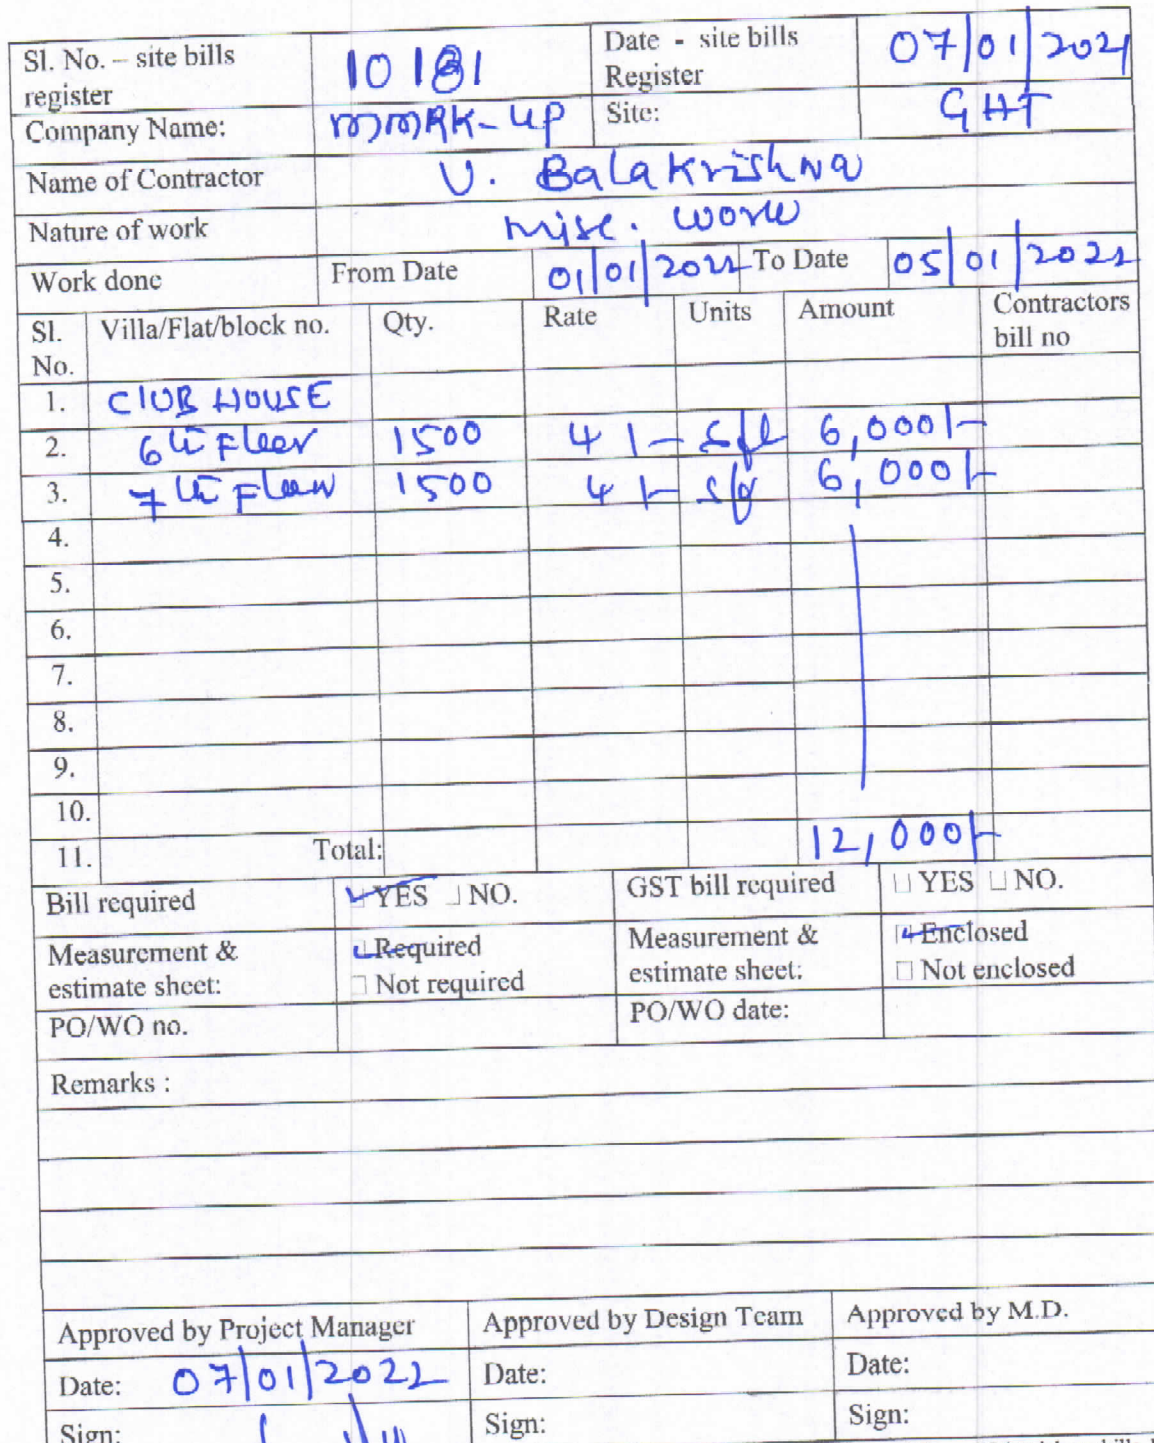 Sl. No. – site bills register 10181 Date - site bills Register 07/01/2021
Company Name: MMRK-UP Site: GHT
Name of Contractor V. BalaKrishna
Nature of work Misc. work
Work done From Date 01/01/2022 To Date 05/01/2022
Sl. No. Villa/Flat/block no. Qty. Rate Units Amount Contractors bill no
1. CLUB HOUSE
2. 6th Floor 1500 4/- sft 6,000/-
3. 7th Floor 1500 4/- sft 6,000/-
4.
5.
6.
7.
8.
9.
10.
11. Total: 12,000/-
Bill required YES NO. GST bill required YES NO.
Measurement & estimate sheet: Required Not required Measurement & estimate sheet: Enclosed Not enclosed
PO/WO no. PO/WO date:
Remarks :
Approved by Project Manager Approved by Design Team Approved by M.D.
Date: 07/01/2022 Date: Date:
Sign: Sign: Sign: